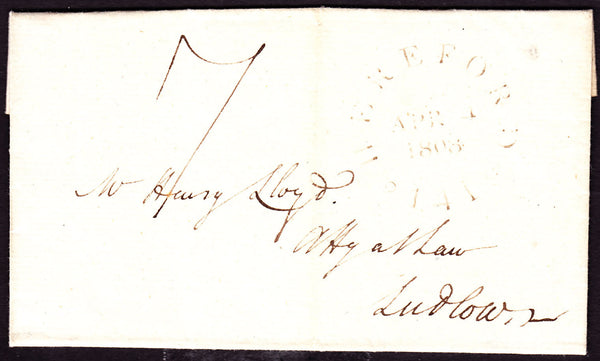 7
HEREFORD
APR 4
1808
141
Mr Henry Lloyd.
Atty at Law
Ludlow